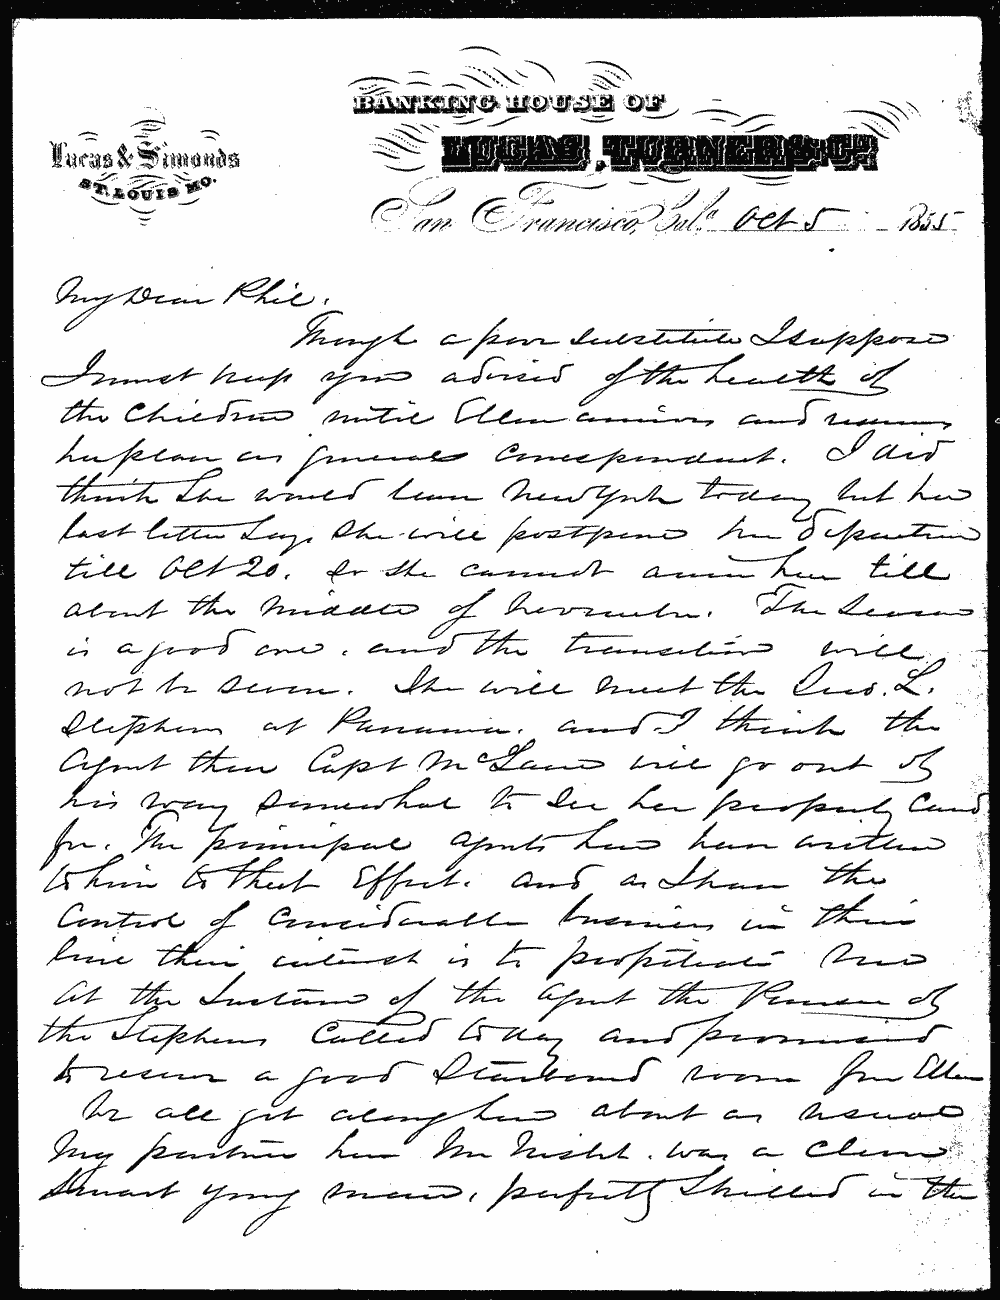 BANKING HOUSE OF
LUCAS, TURNER & CO.
Lucas & Simonds
ST. LOUIS MO.
San Francisco, Cal. Oct 5 1855
My Dear Phil.
Though a poor substitute I suppose
I must keep you advised of the health of
the children until Ellen arrives and resumes
her place as general correspondent. I did
think She would leave New York today but her
last letter says she will postpone her departure
till Oct 20. So she cannot arrive here till
about the Middle of November. The Season
is a good one. and the transition will
not be severe. She will meet the Jno. L.
Stephens at Panama. and I think the
Agent there Capt McLane will go out of
his way somewhat to See her properly cared
for. The principal agents have been written
to him to that Effect. and as I have the
control of considerable business in their
line their interest is to propitiate me
At the Instance of the agent the Purser of
the Stephens Called today and promised
to reserve a good Starboard room for Ellen
We all get along here about as usual
My partner here Mr Nisbet. was a clever
Smart young man, perfectly Skilled in the